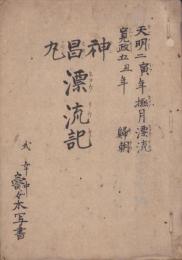 天明二寅年極月漂流
寛政五丑年 歸朝
神昌丸
漂流記
本写書